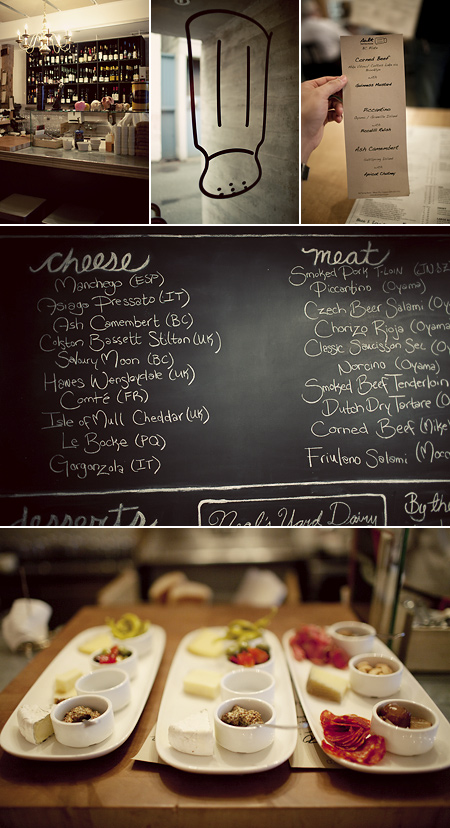 Corned Beef
with
Guinness Mustard
Piccantino
with
Piccalilli Relish
Ash Camembert
with
Apricot Chutney
cheese
Manchego (ESP)
Asiago Pressato (IT)
Ash Camembert (BC)
Colston Bassett Stilton (UK)
Savoury Moon (BC)
Hawes Wensleydale (UK)
Comté (FR)
Isle of Mull Cheddar (UK)
Le Bocke (PQ)
Gorganzola (IT)
meat
Smoked Pork T-loin
Piccantino (Oyama)
Czech Beer Salami (Oy
Chorizo Rioja (Oyama
Classic Saucisson Sec (O
Norcino (Oyama)
Smoked Beef Tenderloin
Dutch Dry Tartare (O
Corned Beef (Mike
Friulano Salami (Mocc
desserts
Neal's Yard Dairy
By the